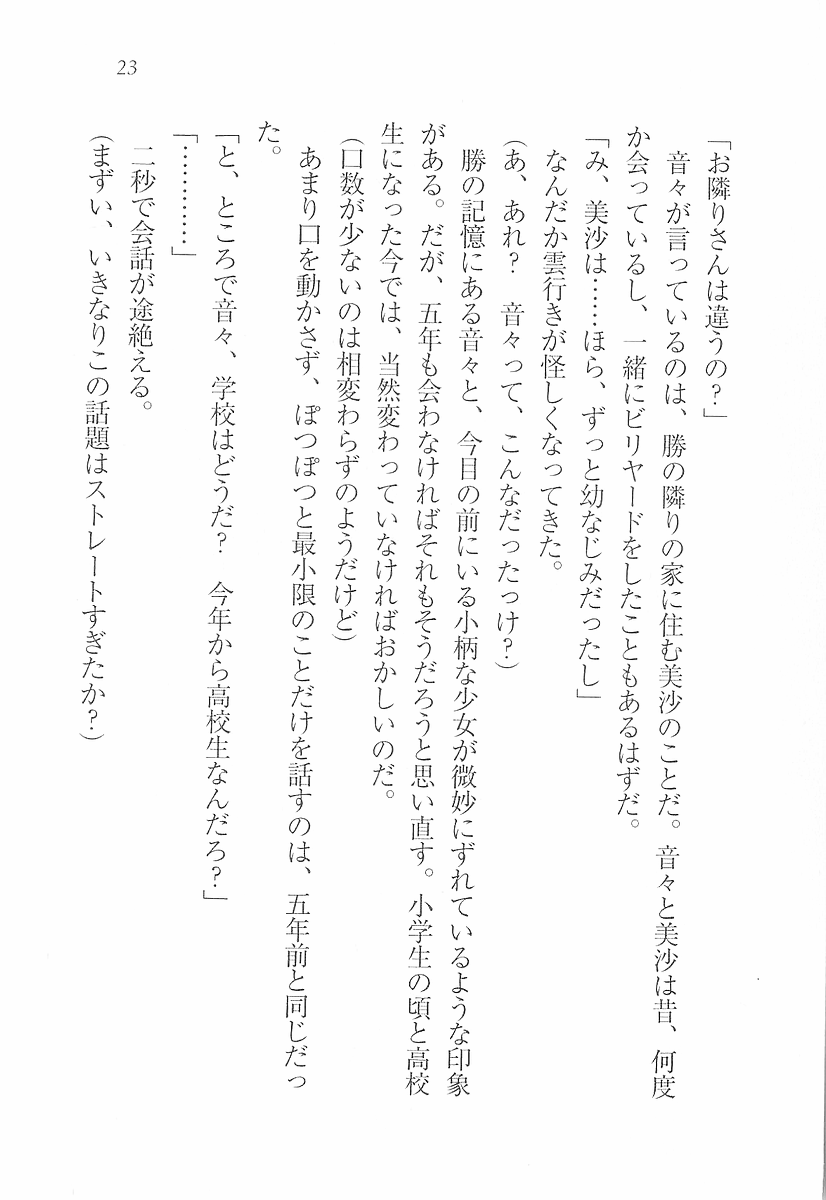 23
「お隣りさんは違うの？」
　音々が言っているのは、勝の隣りの家に住む美沙のことだ。音々と美沙は昔、何度
か会っているし、一緒にビリヤードをしたこともあるはずだ。
「み、美沙は……ほら、ずっと幼なじみだったし」
　なんだか雲行きが怪しくなってきた。
（あ、あれ？　音々って、こんなだったっけ？）
　勝の記憶にある音々と、今目の前にいる小柄な少女が微妙にずれているような印象
がある。だが、五年も会わなければそれもそうだろうと思い直す。小学生の頃と高校
生になった今では、当然変わっていなければおかしいのだ。
（口数が少ないのは相変わらずのようだけど）
　あまり口を動かさず、ぽつぽつと最小限のことだけを話すのは、五年前と同じだっ
た。
「と、ところで音々、学校はどうだ？　今年から高校生なんだろ？」
「…………」
　二秒で会話が途絶える。
（まずい、いきなりこの話題はストレートすぎたか？）